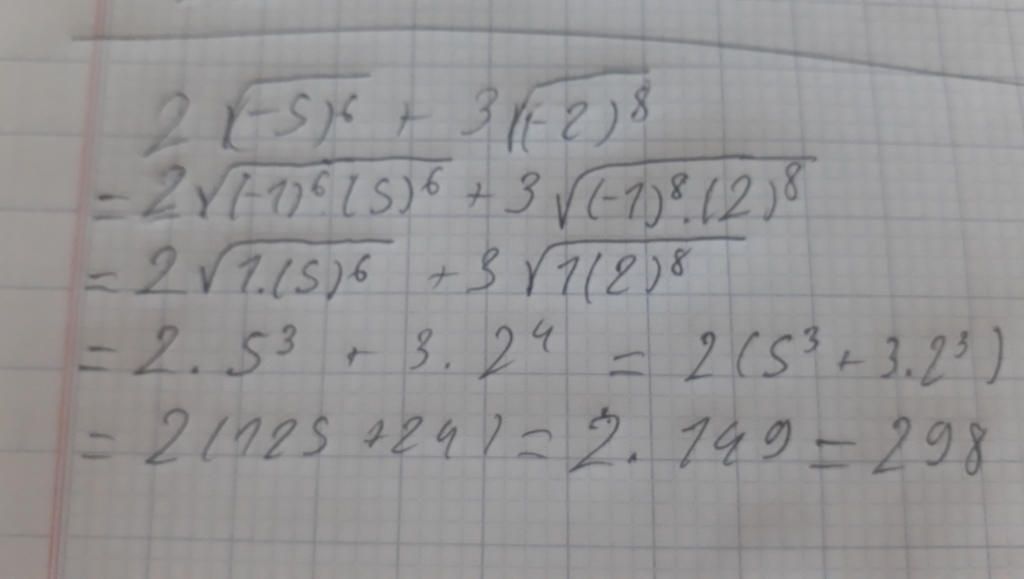 2 √(-5)⁶ + 3√(-2)⁸
= 2√(-1)⁶.(5)⁶ + 3√(-1)⁸.(2)⁸
= 2√1.(5)⁶ + 3√1(2)⁸
= 2. 5³ + 3. 2⁴ = 2(5³ + 3.2³)
= 2(125 + 24) = 2. 149 = 298